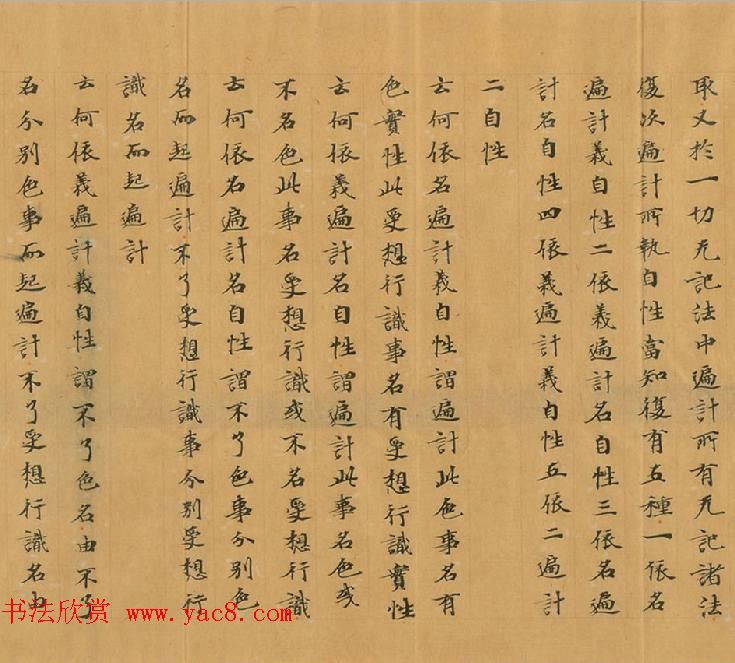 取又於一切无記法中遍計所有无記諸法
復次遍計所執自性當知復有五種一依名
遍計義自性二依義遍計名自性三依名遍
計名自性四依義遍計義自性五依二遍計
二自性
云何依名遍計義自性謂遍計此色事名有
色實性此受想行識事名有受想行識實性
云何依義遍計名自性謂遍計此事名色或
不名色此事名受想行識或不名受想行識
云何依名遍計名自性謂不了色事分別色
名而起遍計不了受想行識事分別受想行
識名而起遍計
云何依義遍計義自性謂不了色名由不了
名分別色事而起遍計不了受想行識名由
书法欣赏 www.yac8.com